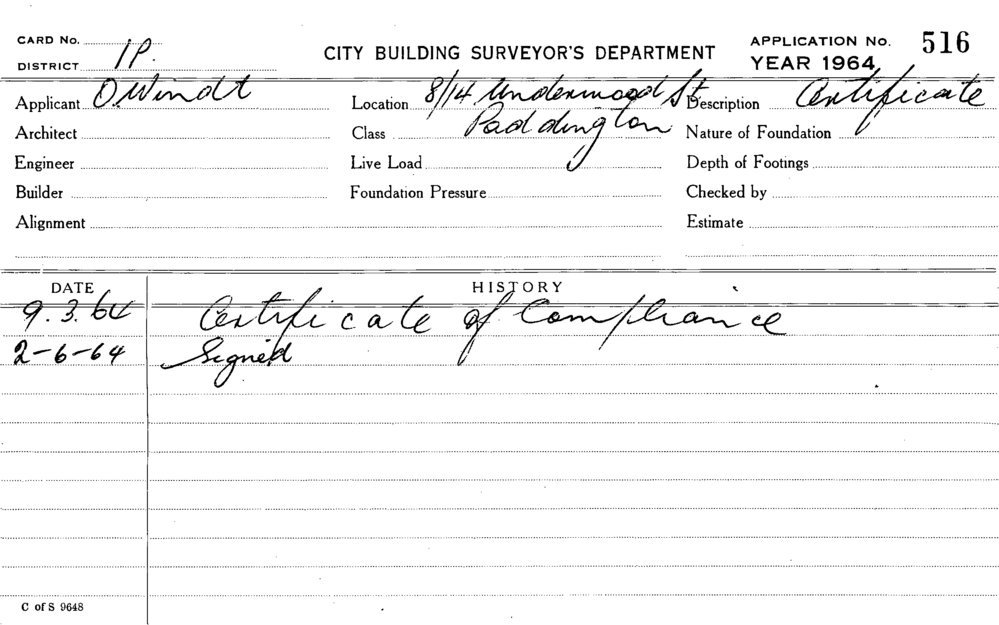 CARD No.
DISTRICT 1P.
CITY BUILDING SURVEYOR'S DEPARTMENT
APPLICATION No. 516
YEAR 1964
Applicant O. Windt
Location 8/14 Underwood St
Description Certificate
Architect
Class Paddington
Nature of Foundation
Engineer
Live Load
Depth of Footings
Builder
Foundation Pressure
Checked by
Alignment
Estimate
DATE HISTORY
9.3.64 Certificate of Compliance
2-6-64 Signed
C of S 9648